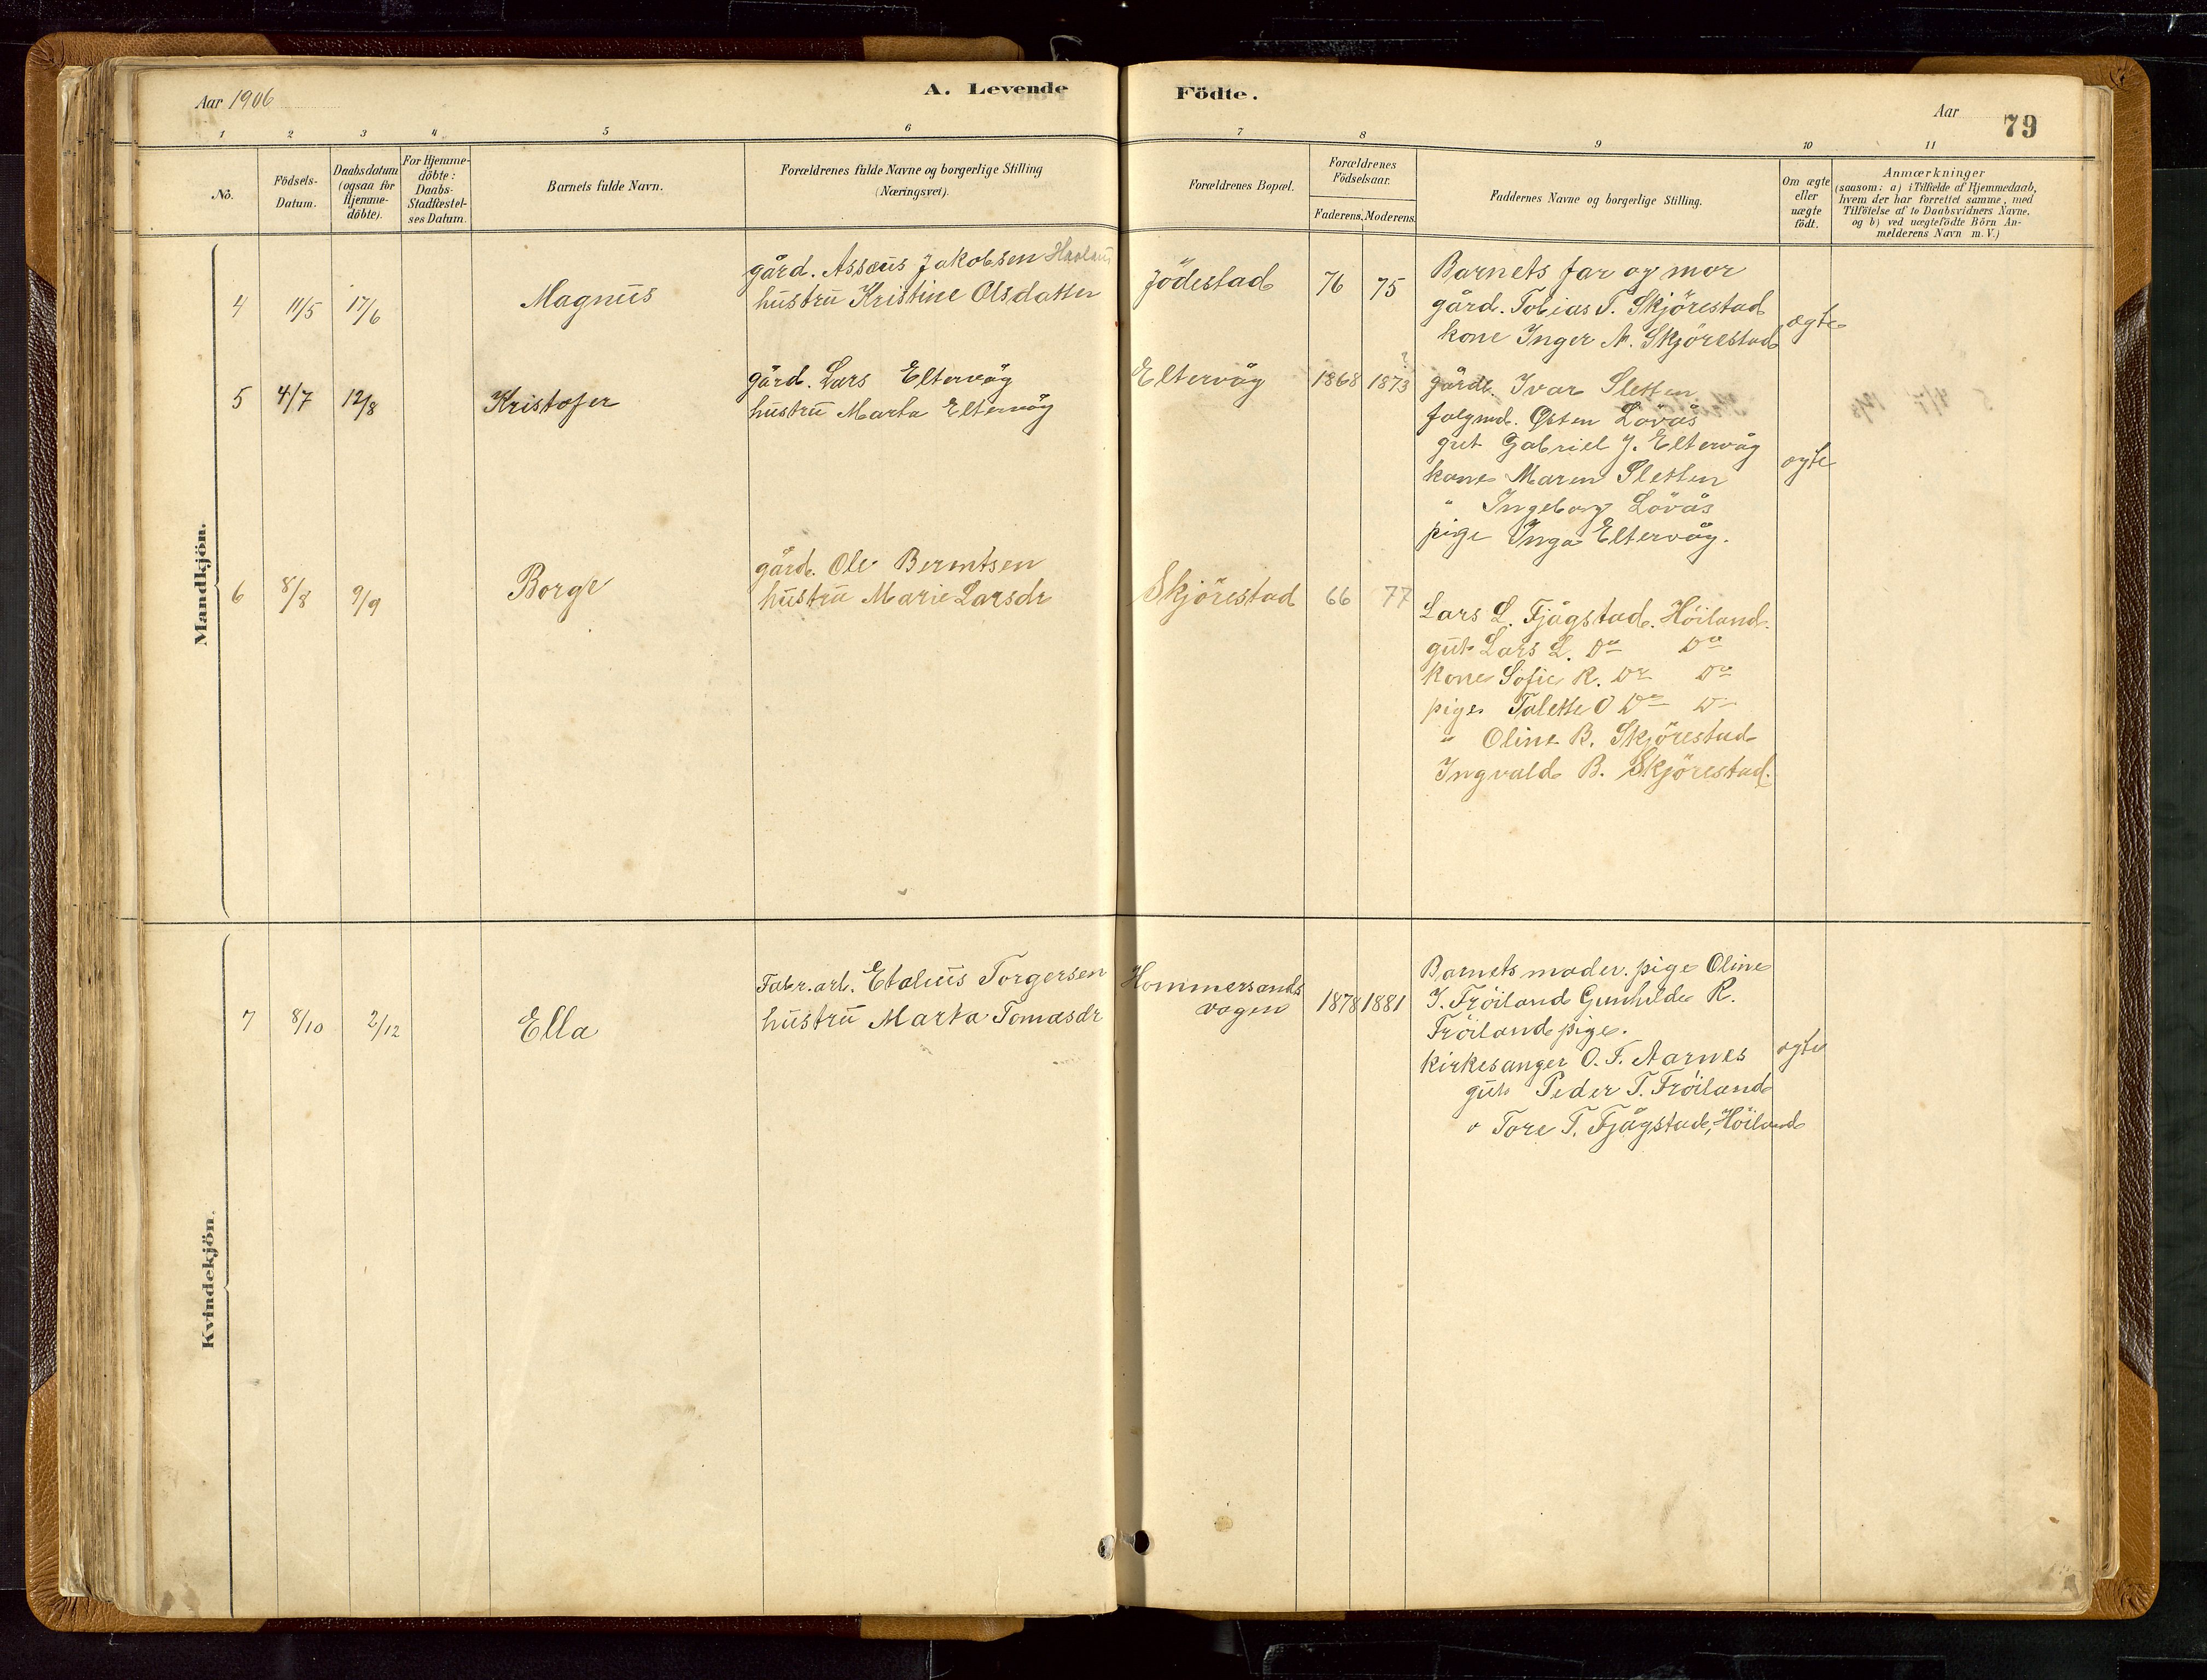 Aar 1906
A. Levende
Födte.
Aar
79
1 2 3 4 5 6 7 8 9 10 11
No.
Födsels-Datum.
Daabsdatum (ogsaa for Hjemme-döbte).
For Hjemme-döbte: Daabs-Stadfæstel-ses Datum.
Barnets fulde Navn.
Forældrenes fulde Navne og borgerlige Stilling (Næringsvei).
Forældrenes Bopæl.
Forældrenes Födselsaar.
Faderens. Moderens.
Faddernes Navne og borgerlige Stilling.
Om ægte eller uægte födt.
Anmærkninger
(saasom: a) i Tilfælde af Hjemmedaab,
hvem der har forrettet samme, med
Tilföielse af to Daabsvidners Navne,
og b) ved uægtefödte Börn An-
melderens Navn m. V.)
Mandkjön.
4 11/5 17/6 Magnus
gård. Assæus Jakobsen Haaland
hustru Kristine Olsdatter
Jödestad 76 75
Barnets far og mor
gård. Tobias T. Skjörestad
kone Inger A. Skjörestad
ægte
5 4/7 12/8 Kristofer
gård. Lars Eltervåg
hustru Marta Eltervåg
Eltervåg 1868 1873 ?
gårdb. Ivar Sletten
folgmd. Østen Lövås
gut Gabriel J. Eltervåg
kone Maren Sletten
" Ingeborg Lövås
pige Inga Eltervåg.
ægte
6 8/8 9/9 Borge
gård. Ole Berentsen
hustru Marie Larsdr
Skjörestad 66 77
Lars L. Fjågstad. Höiland.
gut Lars L. Do Do
kone Sofie R. Do Do
pige Talette O Do Do
" Oline B. Skjörestad
Ingvald B. Skjörestad.
Kvindekjön.
7 8/10 2/12 Ella
Fabr.arb. Etalius Torgersen
hustru Marta Tomasdr
Hommersands
vagen
1878 1881
Barnets moder. pige Oline
J. Fröiland Gunhilde R.
Fröiland pige.
kirkesanger O. F. Aarnes
gut Peder T. Fröiland
" Tore T. Fjågstad, Höiland
ægte